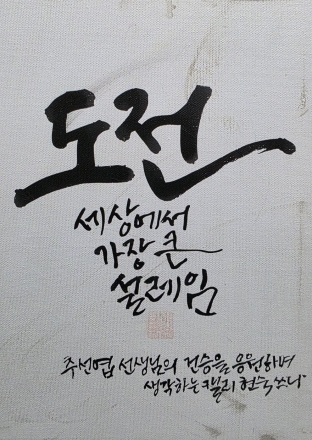 도전
세상에서
가장 큰
설레임
주선엽 선생님의 건승을 응원하며
생각하는 현숙 쓰다